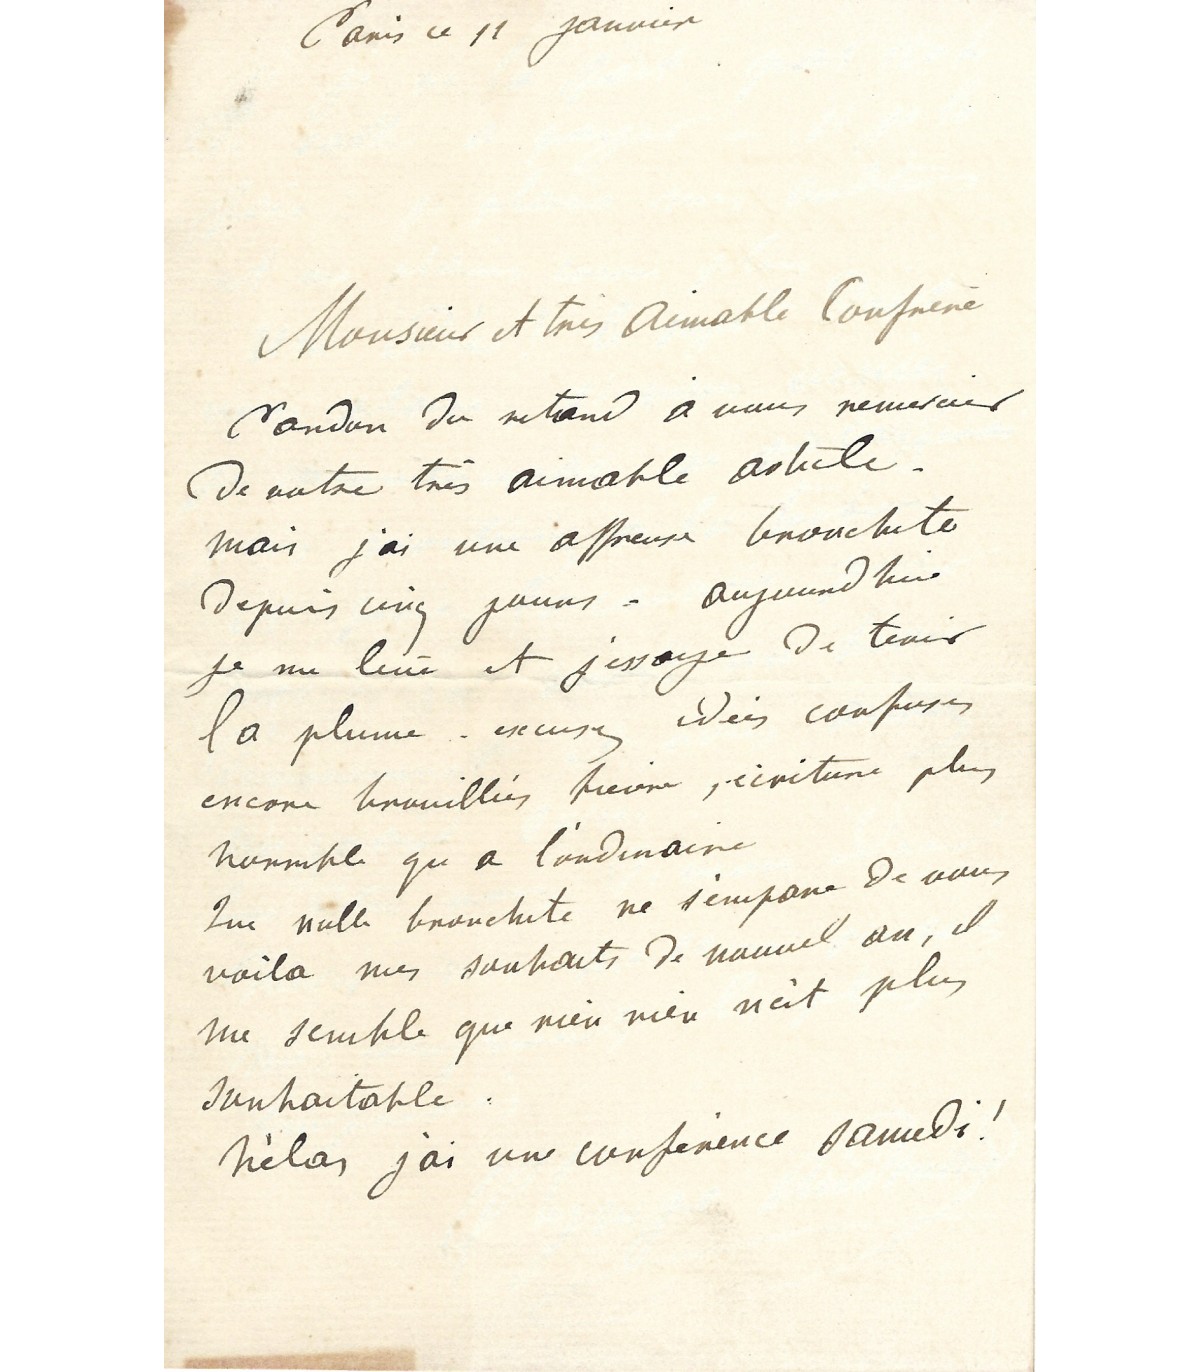 Paris ce 11 janvier
Monsieur et très aimable Confrère
Pardon du retard à vous remercier
de votre très aimable article -
mais j'ai une affreuse bronchite
depuis cinq jours - aujourd'hui
je me lève et j'essaye de tenir
la plume - excusez idées confuses
encore brouillées fièvre, écriture plus
horrible qu a l'ordinaire
Que nulle bronchite ne s'empare de vous
voila mes souhaits de nouvel an, il
me semble que rien rien n'est plus
souhaitable .
hélas j'ai une conférence samedi !